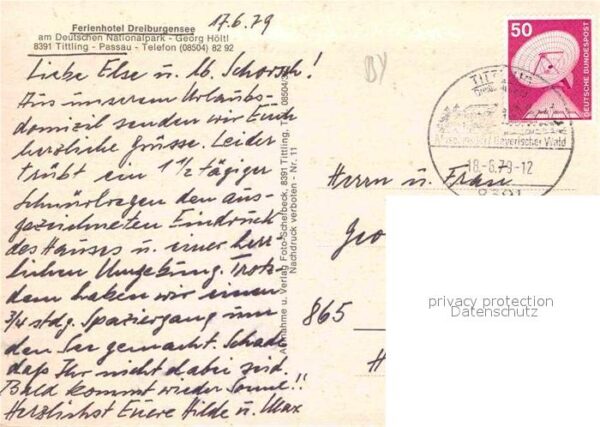 17.6.79
Ferienhotel Dreiburgensee
am Deutschen Nationalpark - Georg Höltl
8391 Tittling - Passau - Telefon (08504) 82 92
Liebe Else u. lb. Schorsch!
Aus unserem Urlaubs-
domizil senden wir Euch
herzliche Grüsse. Leider
trübt ein 1 1/2 tägiger
Schnürlregen den aus-
gezeichneten Eindruck
des Hauses u. einer herr-
lichen Umgebung. Trotz-
dem haben wir einen
3/4 stdg. Spaziergang um
den See gemacht. Schade
daß Ihr nicht dabei seid.
Bald kommt wieder Sonne!!
Herzlichst Euere Hilde u. Max
Aufnahme u. Verlag Foto-Scherbeck, 8391 Tittling, Tel. 08504/
Nachdruck verboten - Nr. 11
BY
50
DEUTSCHE BUNDESPOST
TITTLING
Museumsdorf Bayerischer Wald
18.-6.79-12
8391
Herrn u. Frau
Geo
865
H
privacy protection
Datenschutz